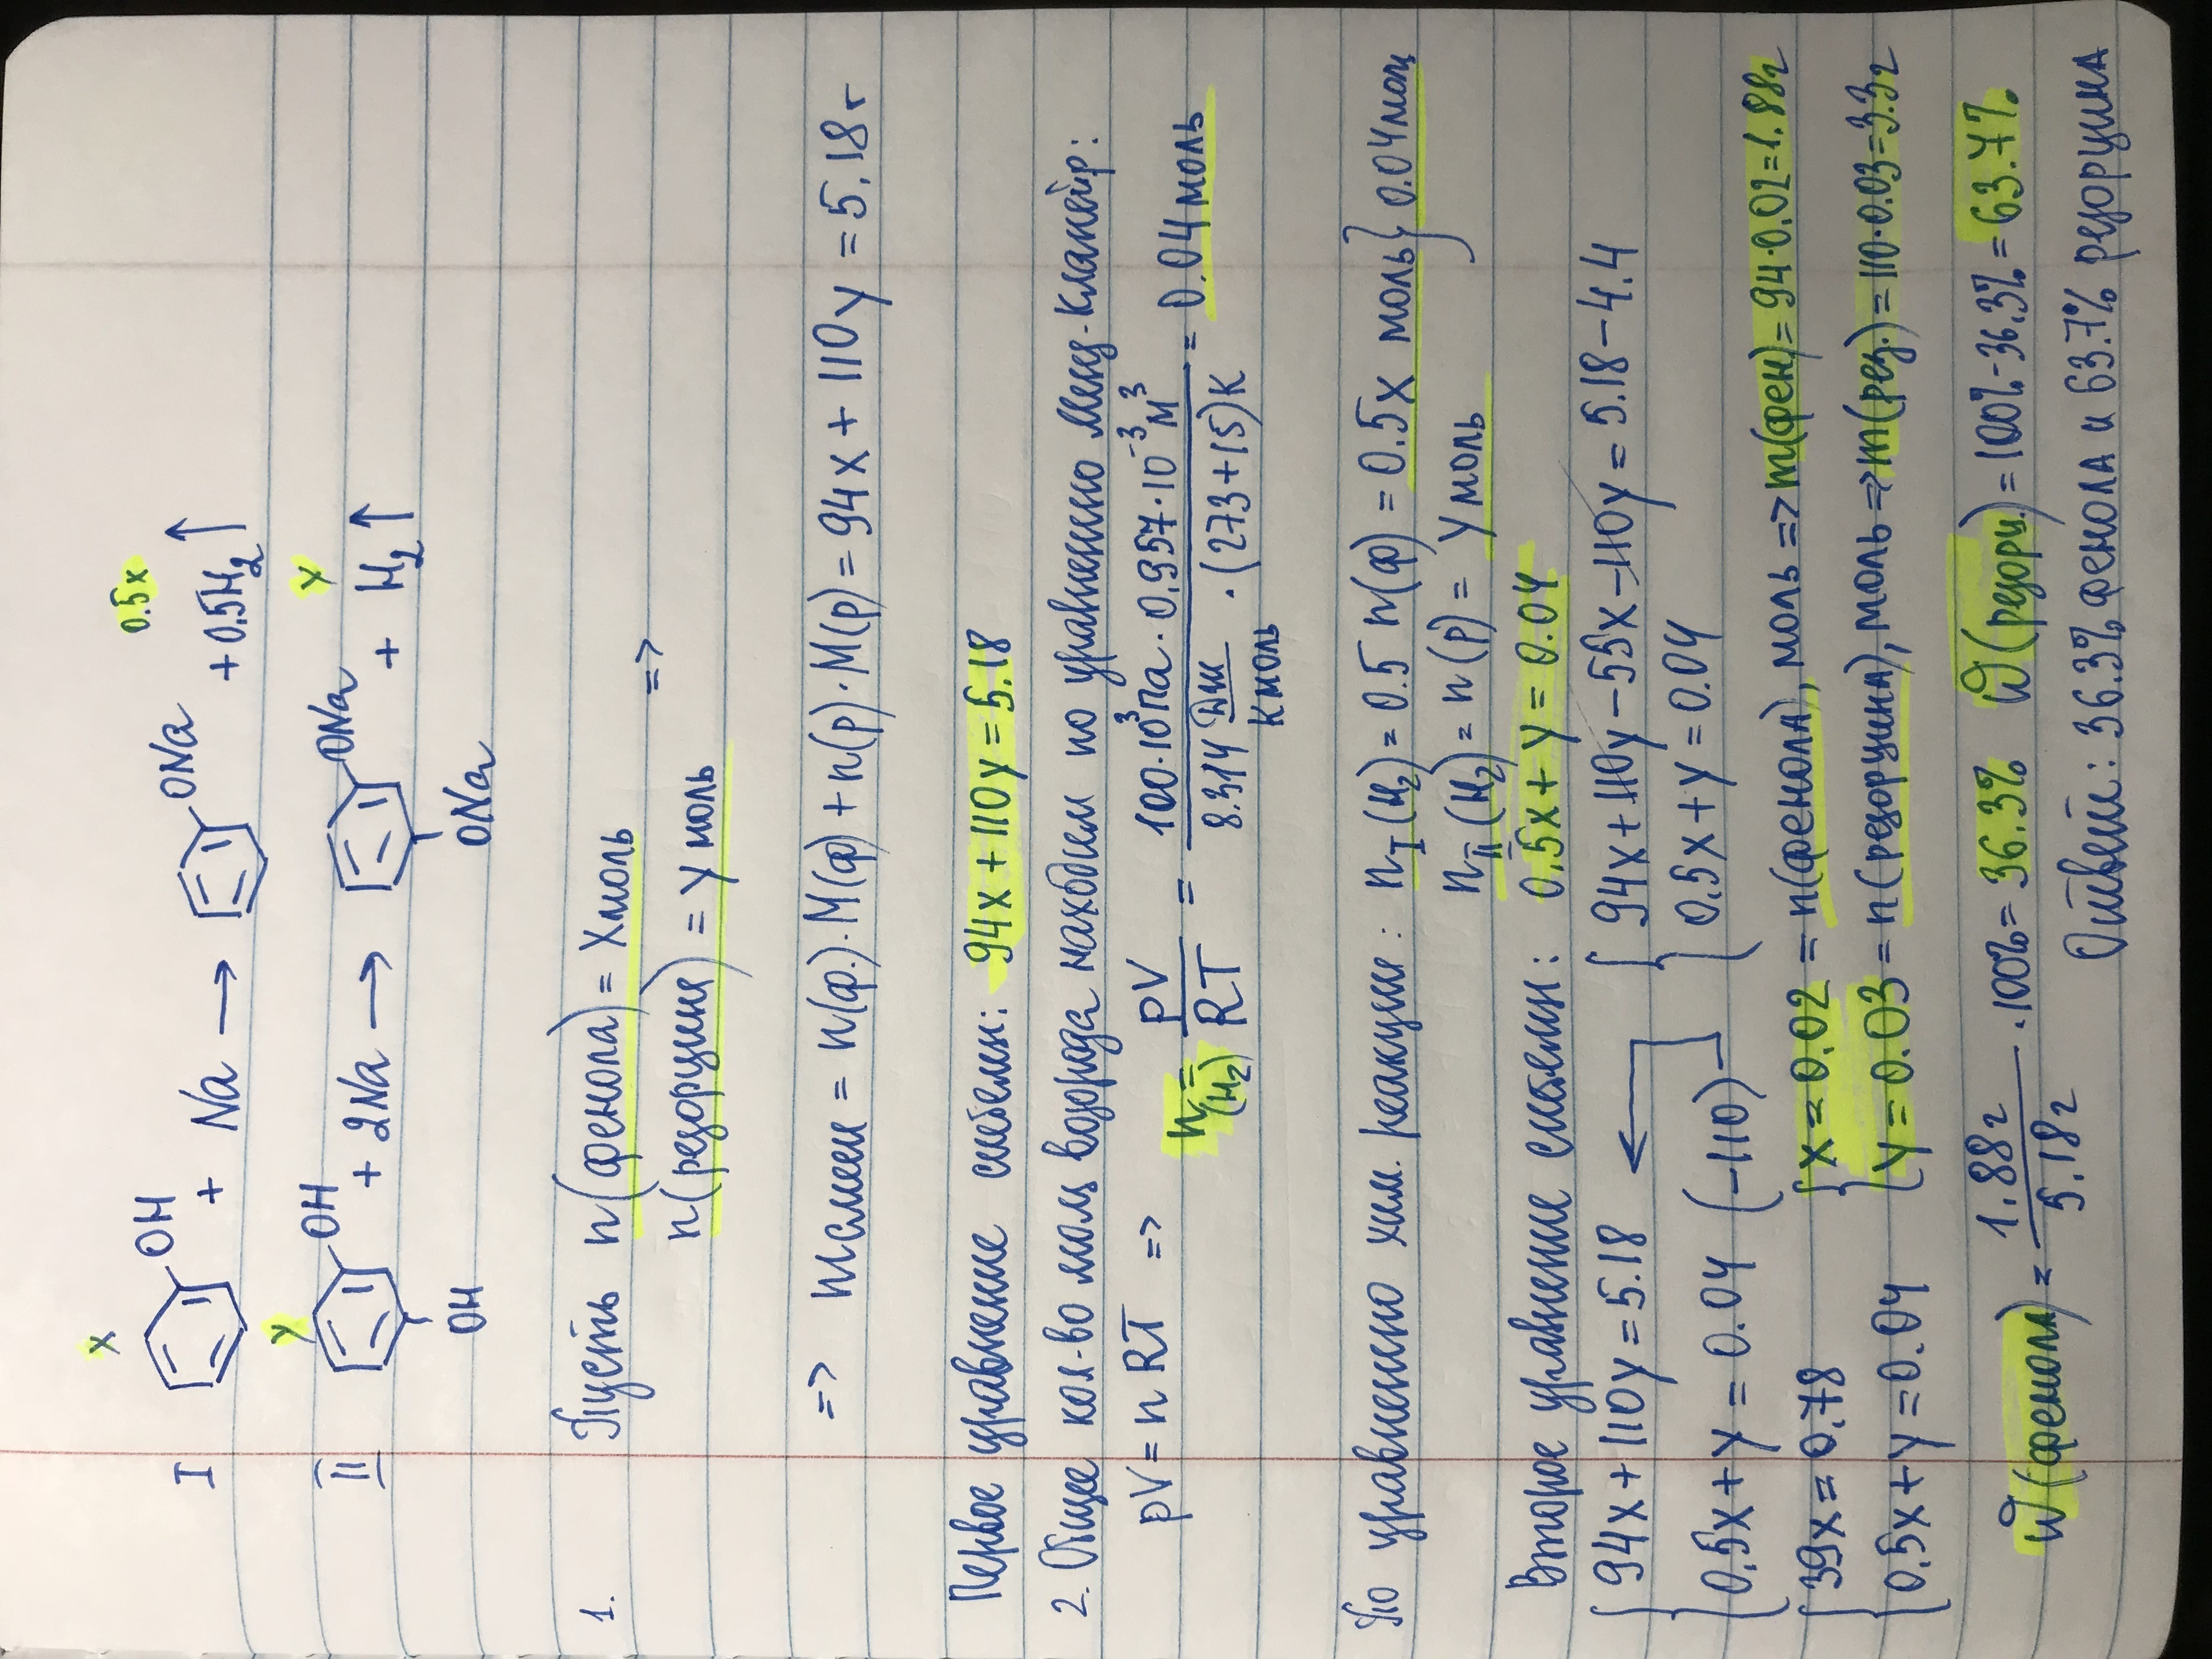 x
0.5x
I OH + Na → ONa + 0.5H₂↑
y
y
II OH + 2Na → ONa + H₂↑
OH
ONa
1. Пусть n(фенола) = X моль
=>
n(резорцина) = y моль
=> mсмеси = n(ф.)·M(ф) + n(р)·M(р) = 94x + 110y = 5.18г
Первое уравнение системы: 94x + 110y = 5.18
2. Общее кол-во моль водорода находим по уравнению Менд-Клапейр:
pV = nRT => n(H₂) = pV/RT = 100·10³Па · 0,957·10⁻³м³ / 8.314 Дж/К моль · (273+15)К = 0.04 моль
По уравнению хим. реакции: nI(H₂) = 0.5 n(ф) = 0.5x моль } 0.04 моль
nII(H₂) = n(р) = y моль
Второе уравнение системы: 0.5x + y = 0.04
94x + 110y = 5.18
94x + 110y − 55x − 110y = 5.18 − 4.4
0.5x + y = 0.04 (−110)
0.5x + y = 0.04
39x = 0.78
x = 0.02 = n(фенола), моль => m(фен) = 94·0.02 = 1.88г
0.5x + y = 0.04
y = 0.03 = n(резорцина), моль => m(рез.) = 110·0.03 = 3.3г
ω(фенола) = 1.88г / 5.18г · 100% = 36.3% ω(резорц.) = 100% − 36.3% = 63.7%
Ответ: 36.3% фенола и 63.7% резорцина